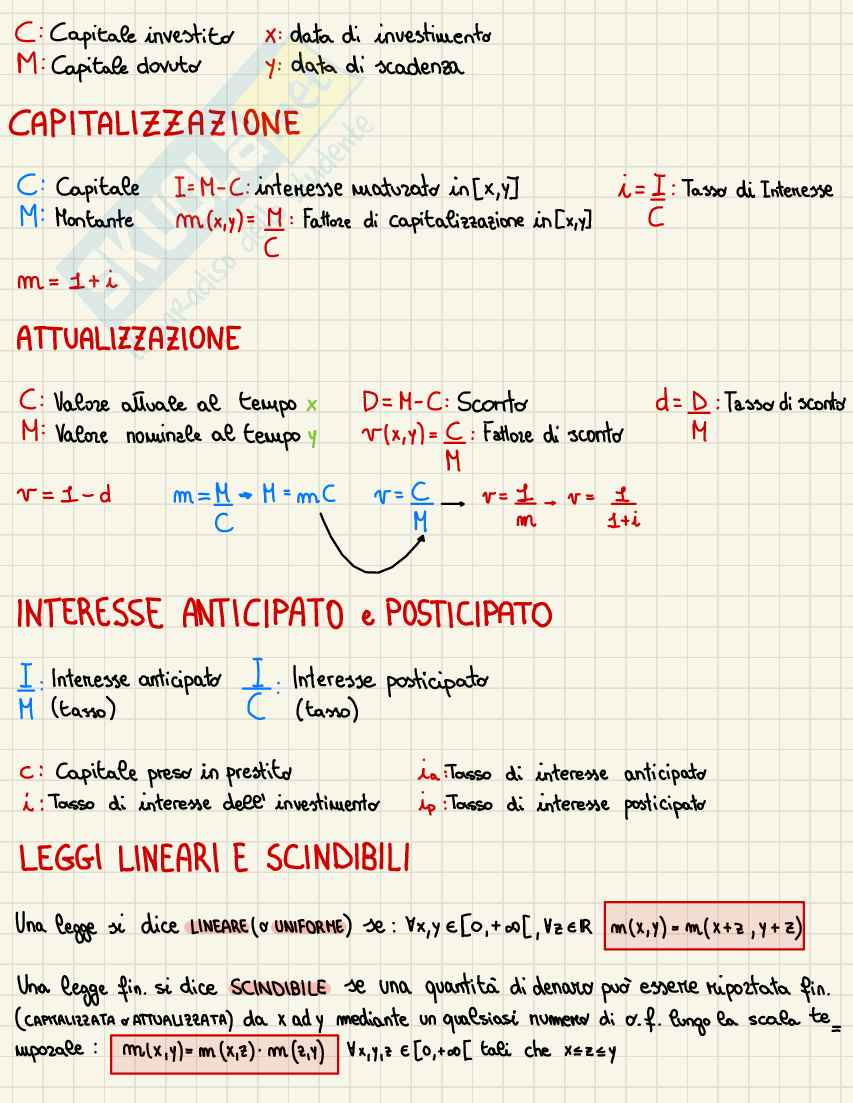 C: Capitale investito x: data di investimento
M: Capitale dovuto y: data di scadenza
CAPITALIZZAZIONE
C: Capitale I = M-C: interesse maturato in [x,y] i = I/C : Tasso di Interesse
M: Montante m(x,y) = M/C : Fattore di capitalizzazione in [x,y]
m = 1 + i
ATTUALIZZAZIONE
C: Valore attuale al tempo x D = M-C: Sconto d = D/M : Tasso di sconto
M: Valore nominale al tempo y v(x,y) = C/M : Fattore di sconto
v = 1 - d m = M/C → M = mC v = C/M → v = 1/m → v = 1/1+i
INTERESSE ANTICIPATO e POSTICIPATO
I/M : Interesse anticipato I/C : Interesse posticipato
(tasso) (tasso)
c: Capitale preso in prestito ia: Tasso di interesse anticipato
i: Tasso di interesse dell' investimento ip: Tasso di interesse posticipato
LEGGI LINEARI E SCINDIBILI
Una legge si dice LINEARE (o UNIFORME) se: ∀x,y ∈ [0,+∞[, ∀z ∈ ℝ m(x,y) = m(x+z, y+z)
Una legge fin. si dice SCINDIBILE se una quantità di denaro può essere riportata fin.
(CAPITALIZZATA o ATTUALIZZATA) da x ad y mediante un qualsiasi numero di o.f. lungo la scala te=
mporale: m(x,y) = m(x,z) · m(z,y) ∀x,y,z ∈ [0,+∞[ tali che x≤z≤y
SKUOLA.net
il paradiso dello studente